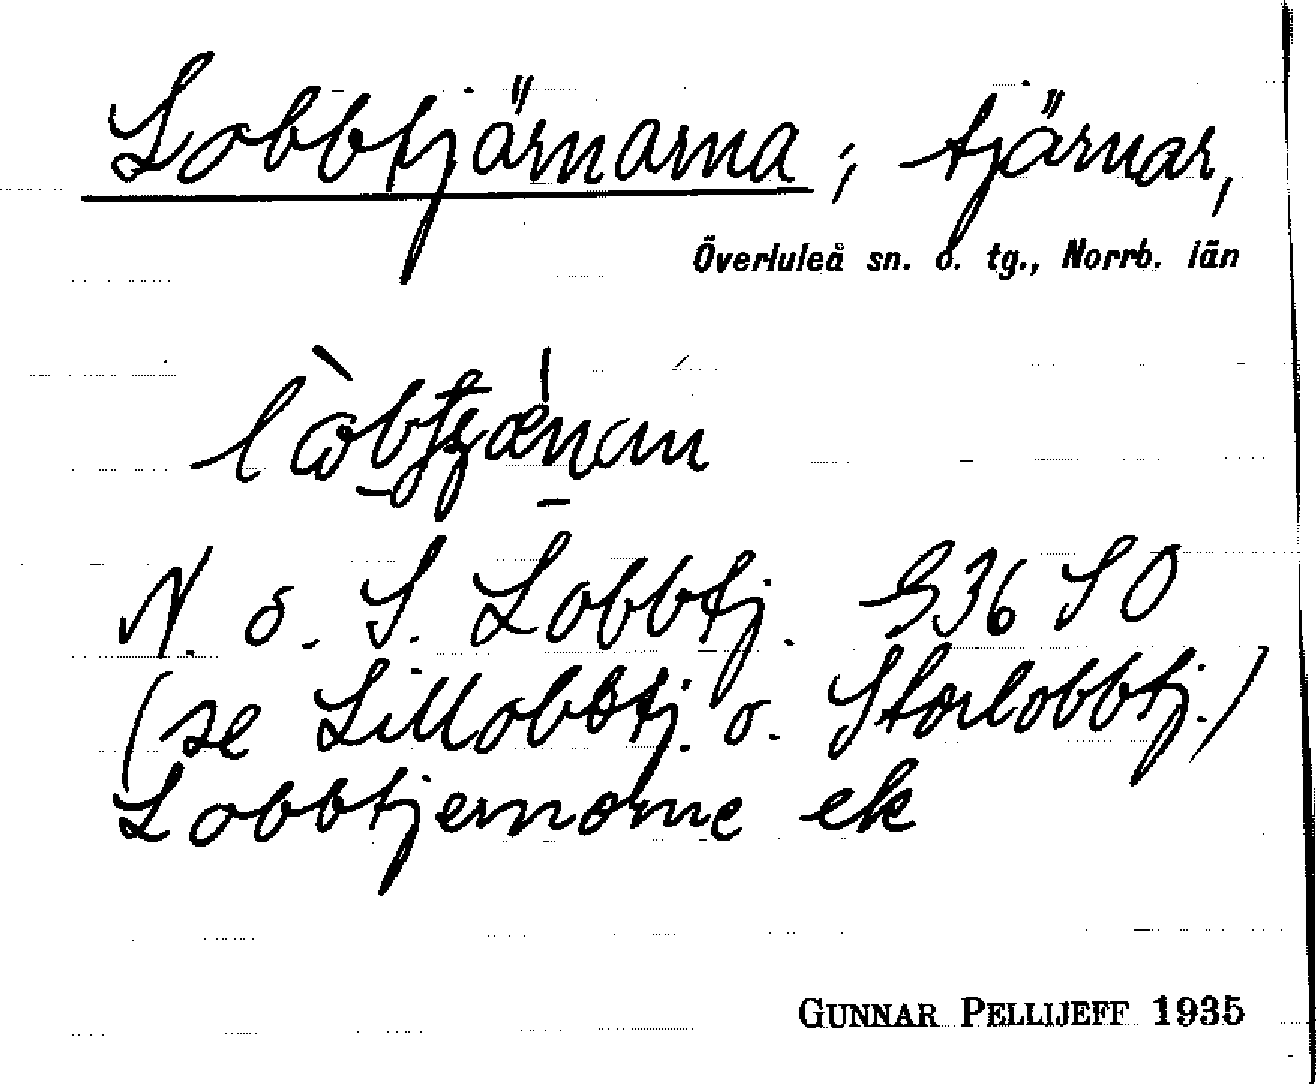 Lobbtjärnarna; tjärnar,
Överluleå sn. o. tg., Norrb. län
N. o. S. Lobbtj. G36 SO
(se Lillobbtj. o. Storlobbtj.)
Lobbtjernarne ek
GUNNAR PELLIJEFF 1935